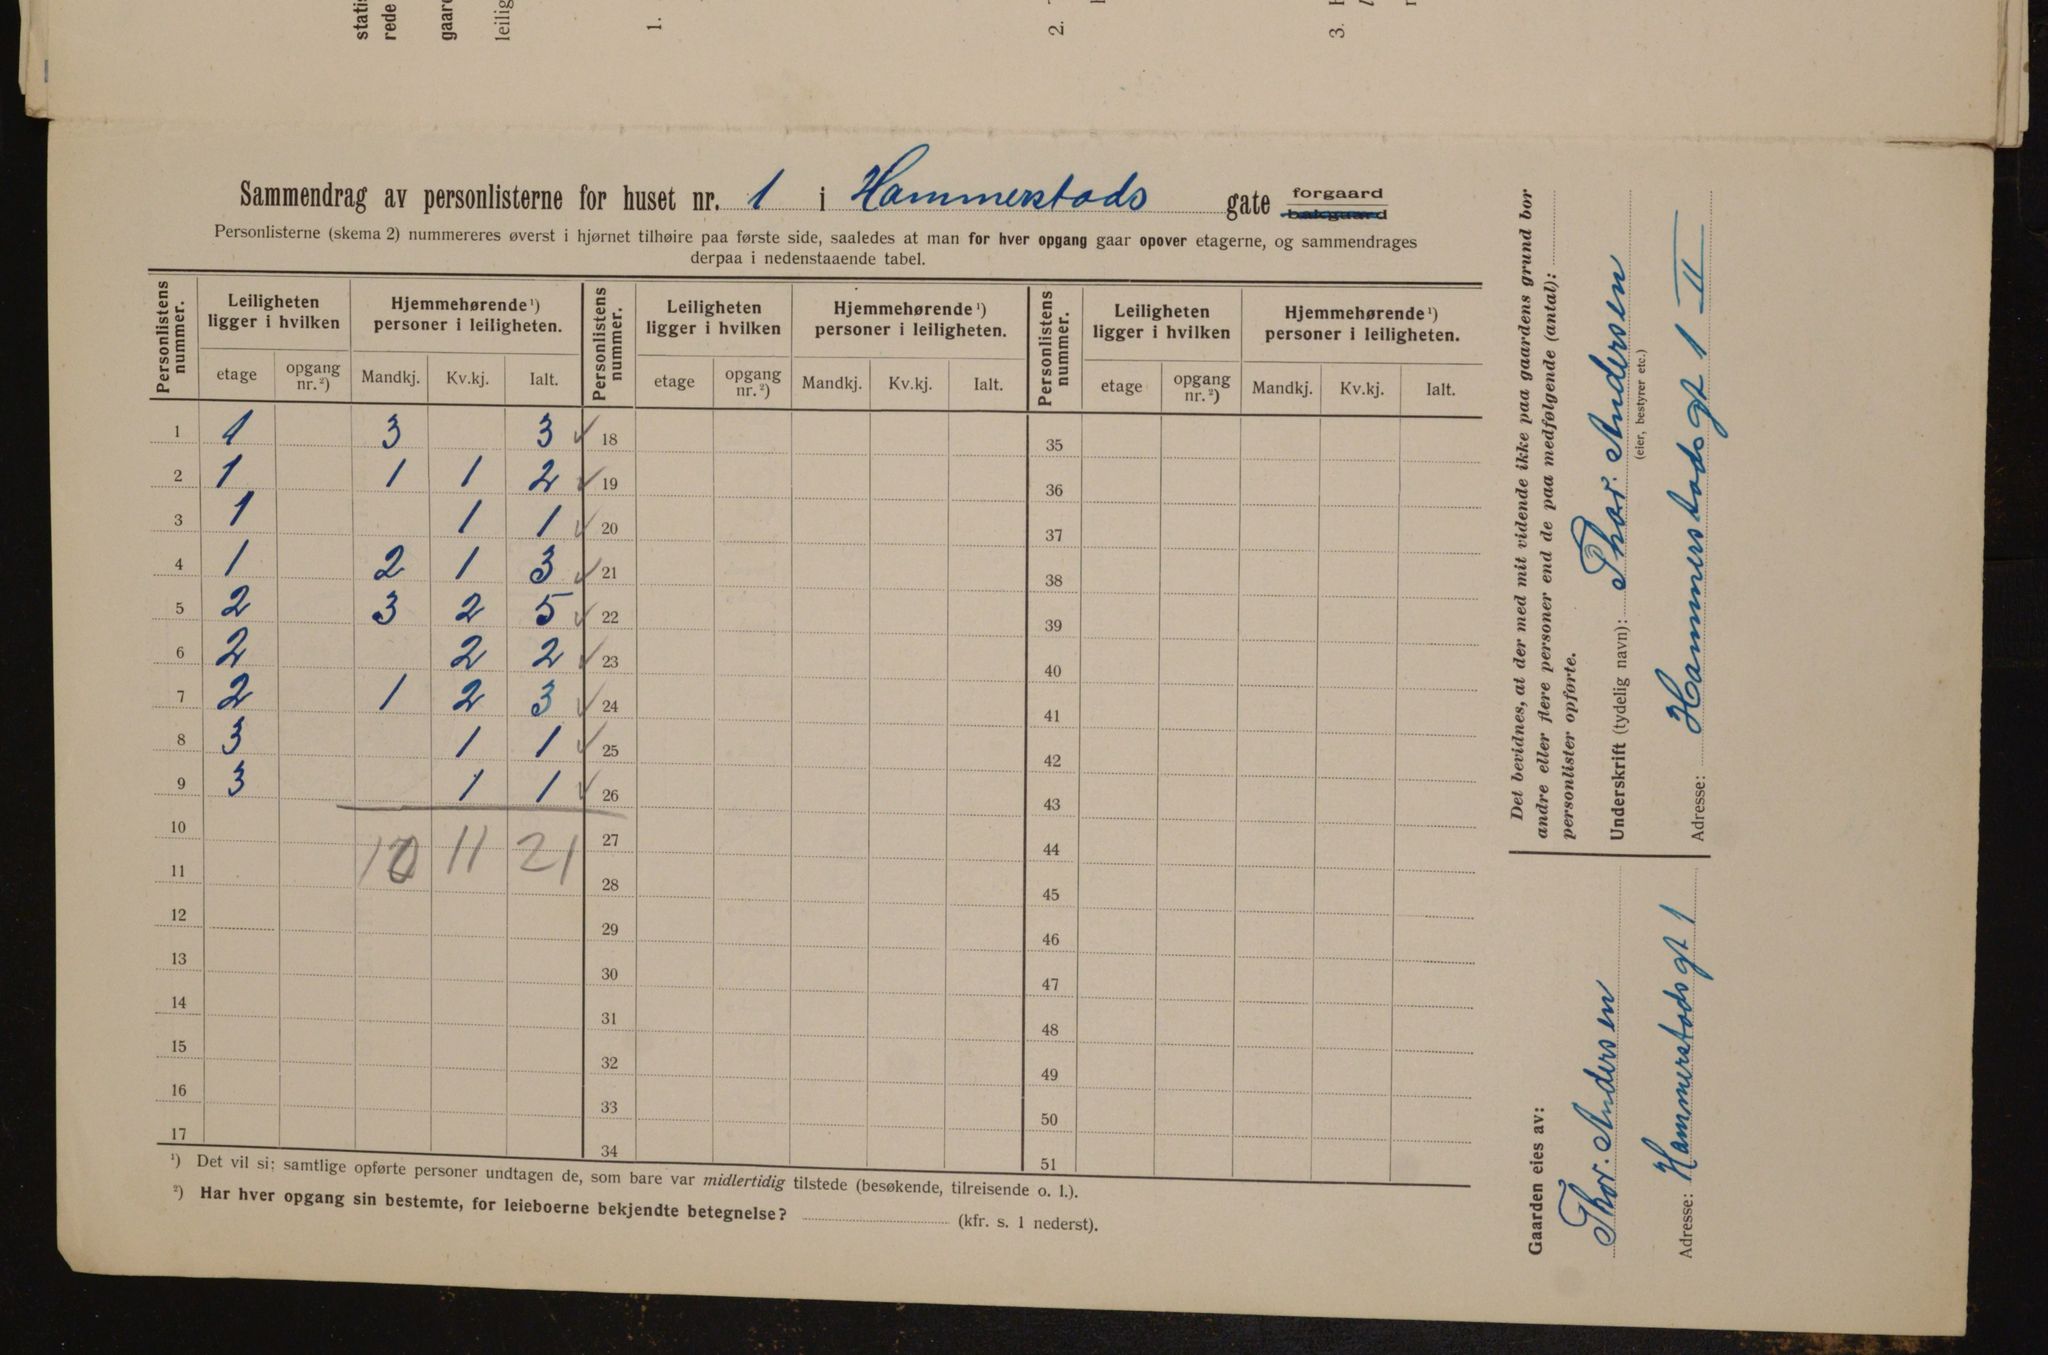 statis
rede
gaard
leilig
1.
2.
3.
Sammendrag av personlisterne for huset nr. 1 i Hammerstads gate forgaard bakgaard
Personlisterne (skema 2) nummereres øverst i hjørnet tilhøire paa første side, saaledes at man for hver opgang gaar opover etagerne, og sammendrages
derpaa i nedenstaaende tabel.
Personlistens nummer. Leiligheten ligger i hvilken Hjemmehørende ¹) personer i leiligheten. Personlistens nummer. Leiligheten ligger i hvilken Hjemmehørende ¹) personer i leiligheten. Personlistens nummer. Leiligheten ligger i hvilken Hjemmehørende ¹) personer i leiligheten.
etage opgang nr. ²) Mandkj. Kv.kj. Ialt. etage opgang nr. ²) Mandkj. Kv.kj. Ialt. etage opgang nr. ²) Mandkj. Kv.kj. Ialt.
1 1 3 3 ✓ 18 35
2 1 1 1 2 ✓ 19 36
3 1 1 1 ✓ 20 37
4 1 2 1 3 ✓ 21 38
5 2 3 2 5 ✓ 22 39
6 2 2 2 ✓ 23 40
7 2 1 2 3 ✓ 24 41
8 3 1 1 ✓ 25 42
9 3 1 1 ✓ 26 43
10 27 44
10 11 21
11 28 45
12 29 46
13 30 47
14 31 48
15 32 49
16 33 50
17 34 51
¹) Det vil si: samtlige opførte personer undtagen de, som bare var midlertidig tilstede (besøkende, tilreisende o. l.).
²) Har hver opgang sin bestemte, for leieboerne bekjendte betegnelse? (kfr. s. 1 nederst).
Det bevidnes, at der med mit vidende ikke paa gaardens grund bor
andre eller flere personer end de paa medfølgende (antal):
personlister opførte.
Underskrift (tydelig navn): Thor. Andersen
(eier, bestyrer etc.)
Adresse: Hammerstads gt 1 II
Gaarden eies av:
Thor. Andersen
Adresse: Hammerstads gt 1